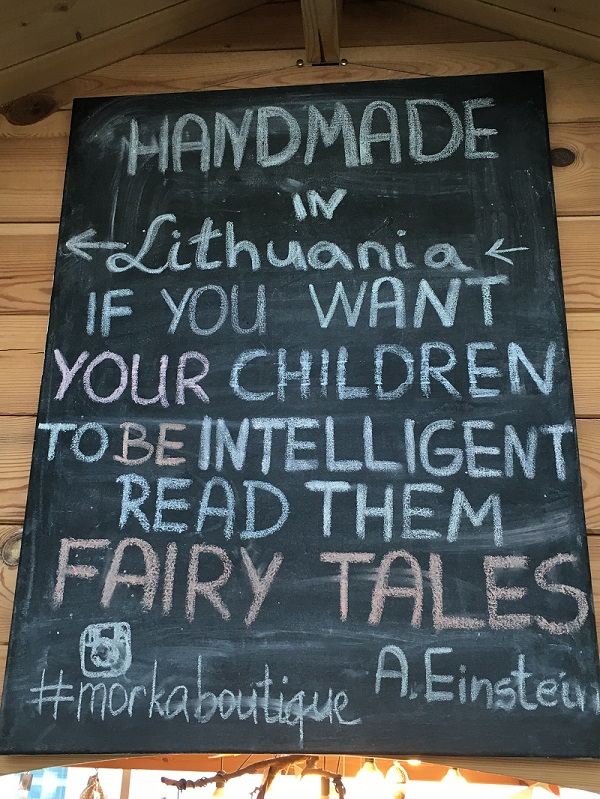 HANDMADE
IN
Lithuania
IF YOU WANT
YOUR CHILDREN
TO BE INTELLIGENT
READ THEM
FAIRY TALES
A. Einstein
#morkaboutique